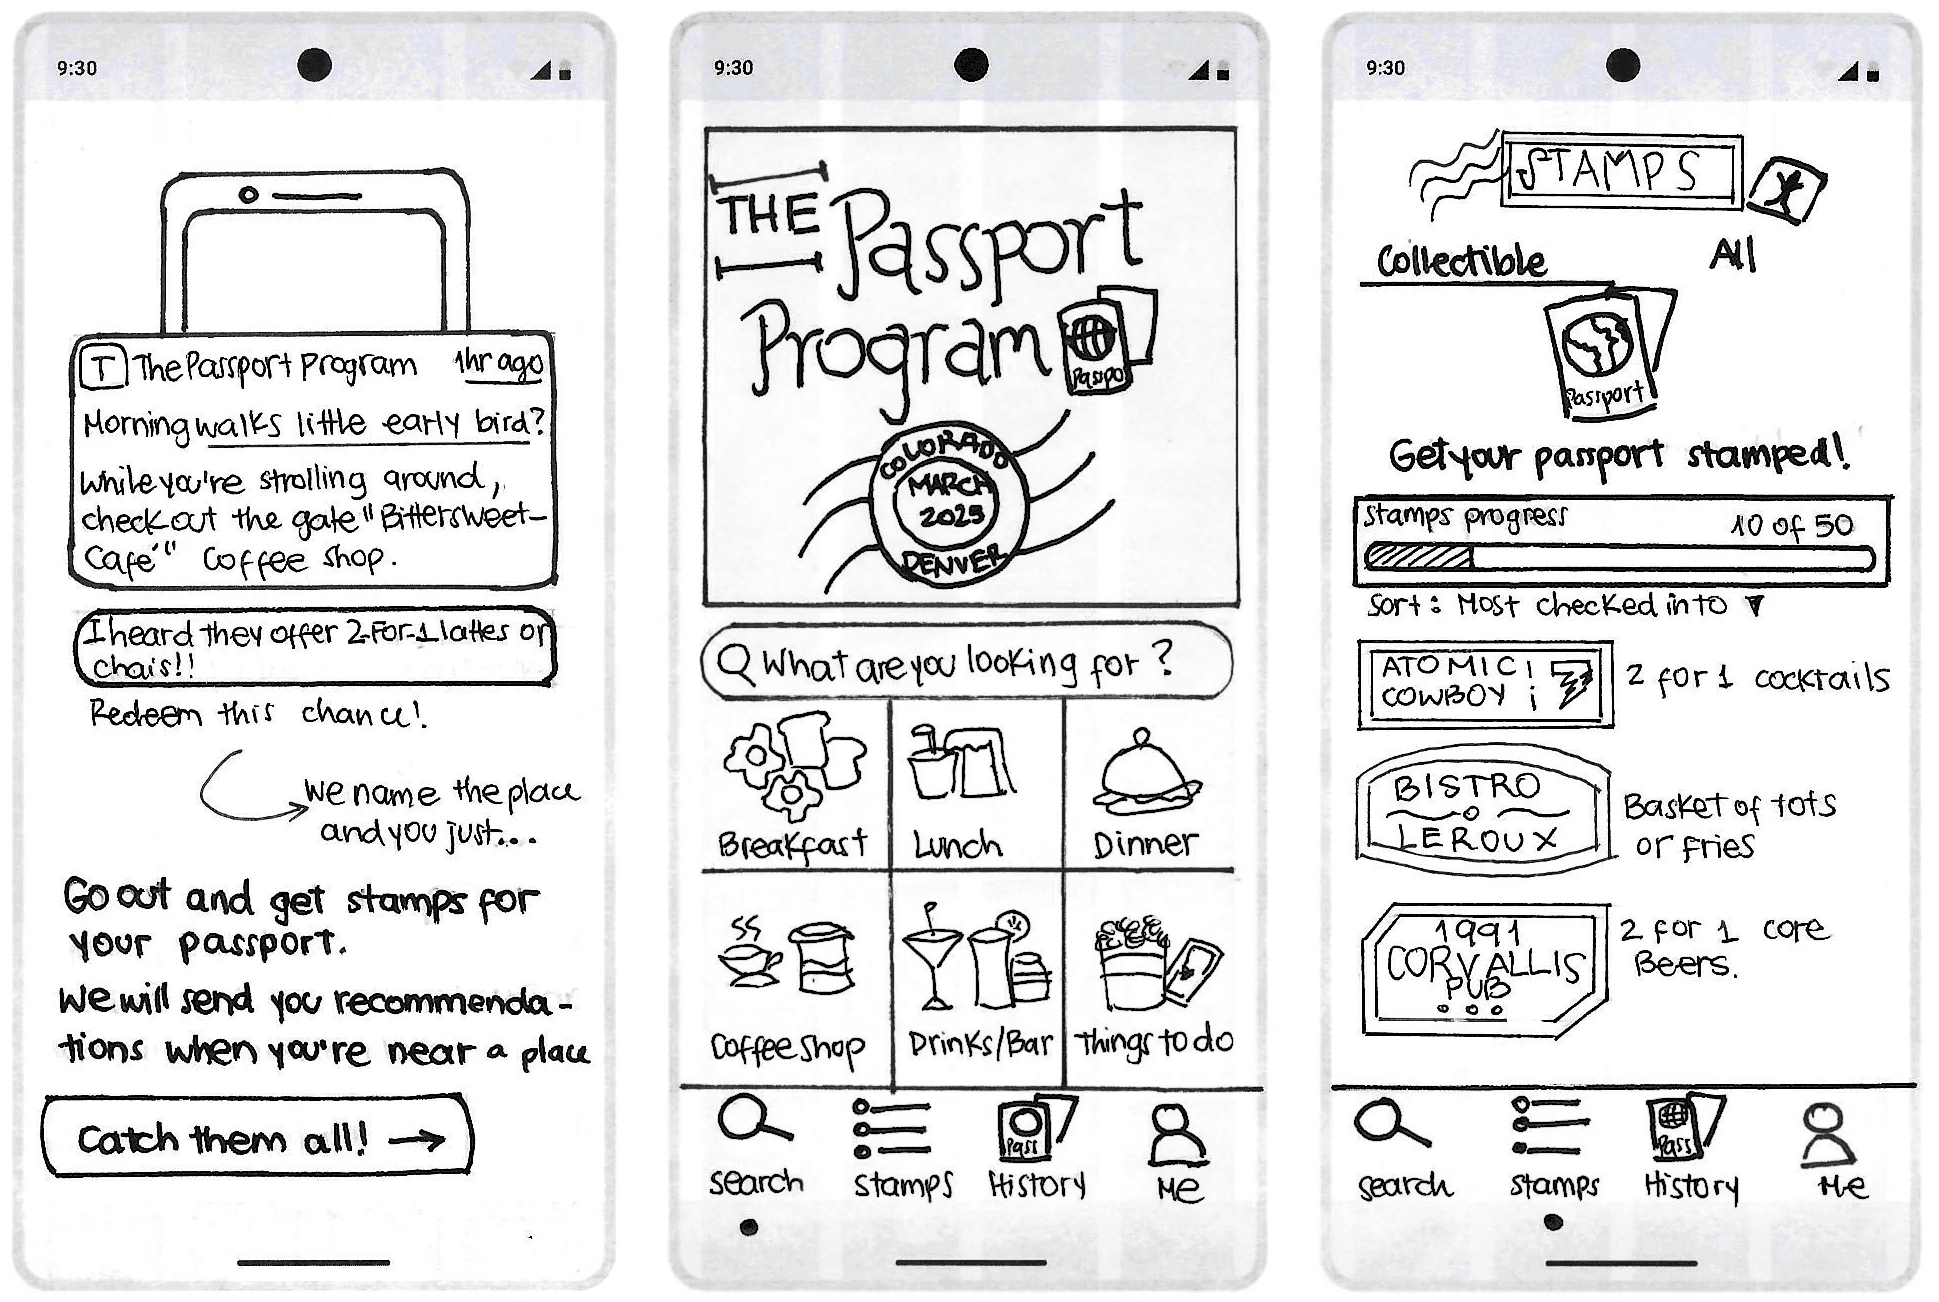 9:30
T The Passport Program 1hr ago
Morning walks little early bird?
While you're strolling around,
check out the gate "Bittersweet-
Café" Coffee shop.
I heard they offer 2-For-1 lattes or
chais!!
Redeem this chance!
We name the place
and you just...
Go out and get stamps for
your passport.
We will send you recommenda-
tions when you're near a place
Catch them all! →
9:30
THE Passport
Program
Paspo
COLORADO
MARCH
2025
DENVER
What are you looking for?
Breakfast Lunch Dinner
Coffee Shop Drinks/Bar Things to do
Pass
Search Stamps History Me
9:30
STAMPS
Collectible All
Passport
Get your passport stamped!
Stamps progress 10 of 50
Sort: Most checked into ▼
ATOMIC¡
COWBOY ¡
2 for 1 cocktails
BISTRO
LEROUX
Basket of tots
or fries
1991
CORVALLIS
PUB
2 for 1 core
Beers.
Pass
Search Stamps History Me